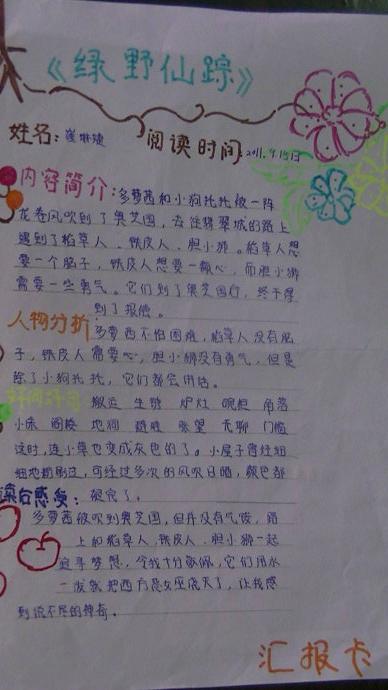 《绿野仙踪》
姓名: 崔
阅读时间: 2011.9.15日
内容简介: 多萝茜和小狗托托被一阵
龙卷风吹到了奥芝国,去往翡翠城的路上
遇到了稻草人、铁皮人、胆小狮。稻草人想
要一个脑子,铁皮人想要一颗心,而胆小狮
需要一些勇气。它们到了奥芝国后,终于得
到了报偿。
人物分析: 多萝茜不怕困难,稻草人没有脑
子,铁皮人需要心,胆小狮没有勇气,但是
除了小狗托托,它们都会用估。
好词好句 搬运 生锈 炉灶 碗柜 角落
小床 阁楼 地洞 张望 无聊 门槛
这时,连小草也变成灰色的了。小屋子曾经细
细地粉刷过,可经过多次的风吹日晒,颜色都
褪完了。
读后感受:
多萝茜被吹到奥芝国,但并没有气馁,踏
上和稻草人、铁皮人、胆小狮一起
追寻梦想,令我十分敬佩,它们用水
一泼就把西方恶女巫浇灭了,让我感
到说不尽的神奇。
汇报卡